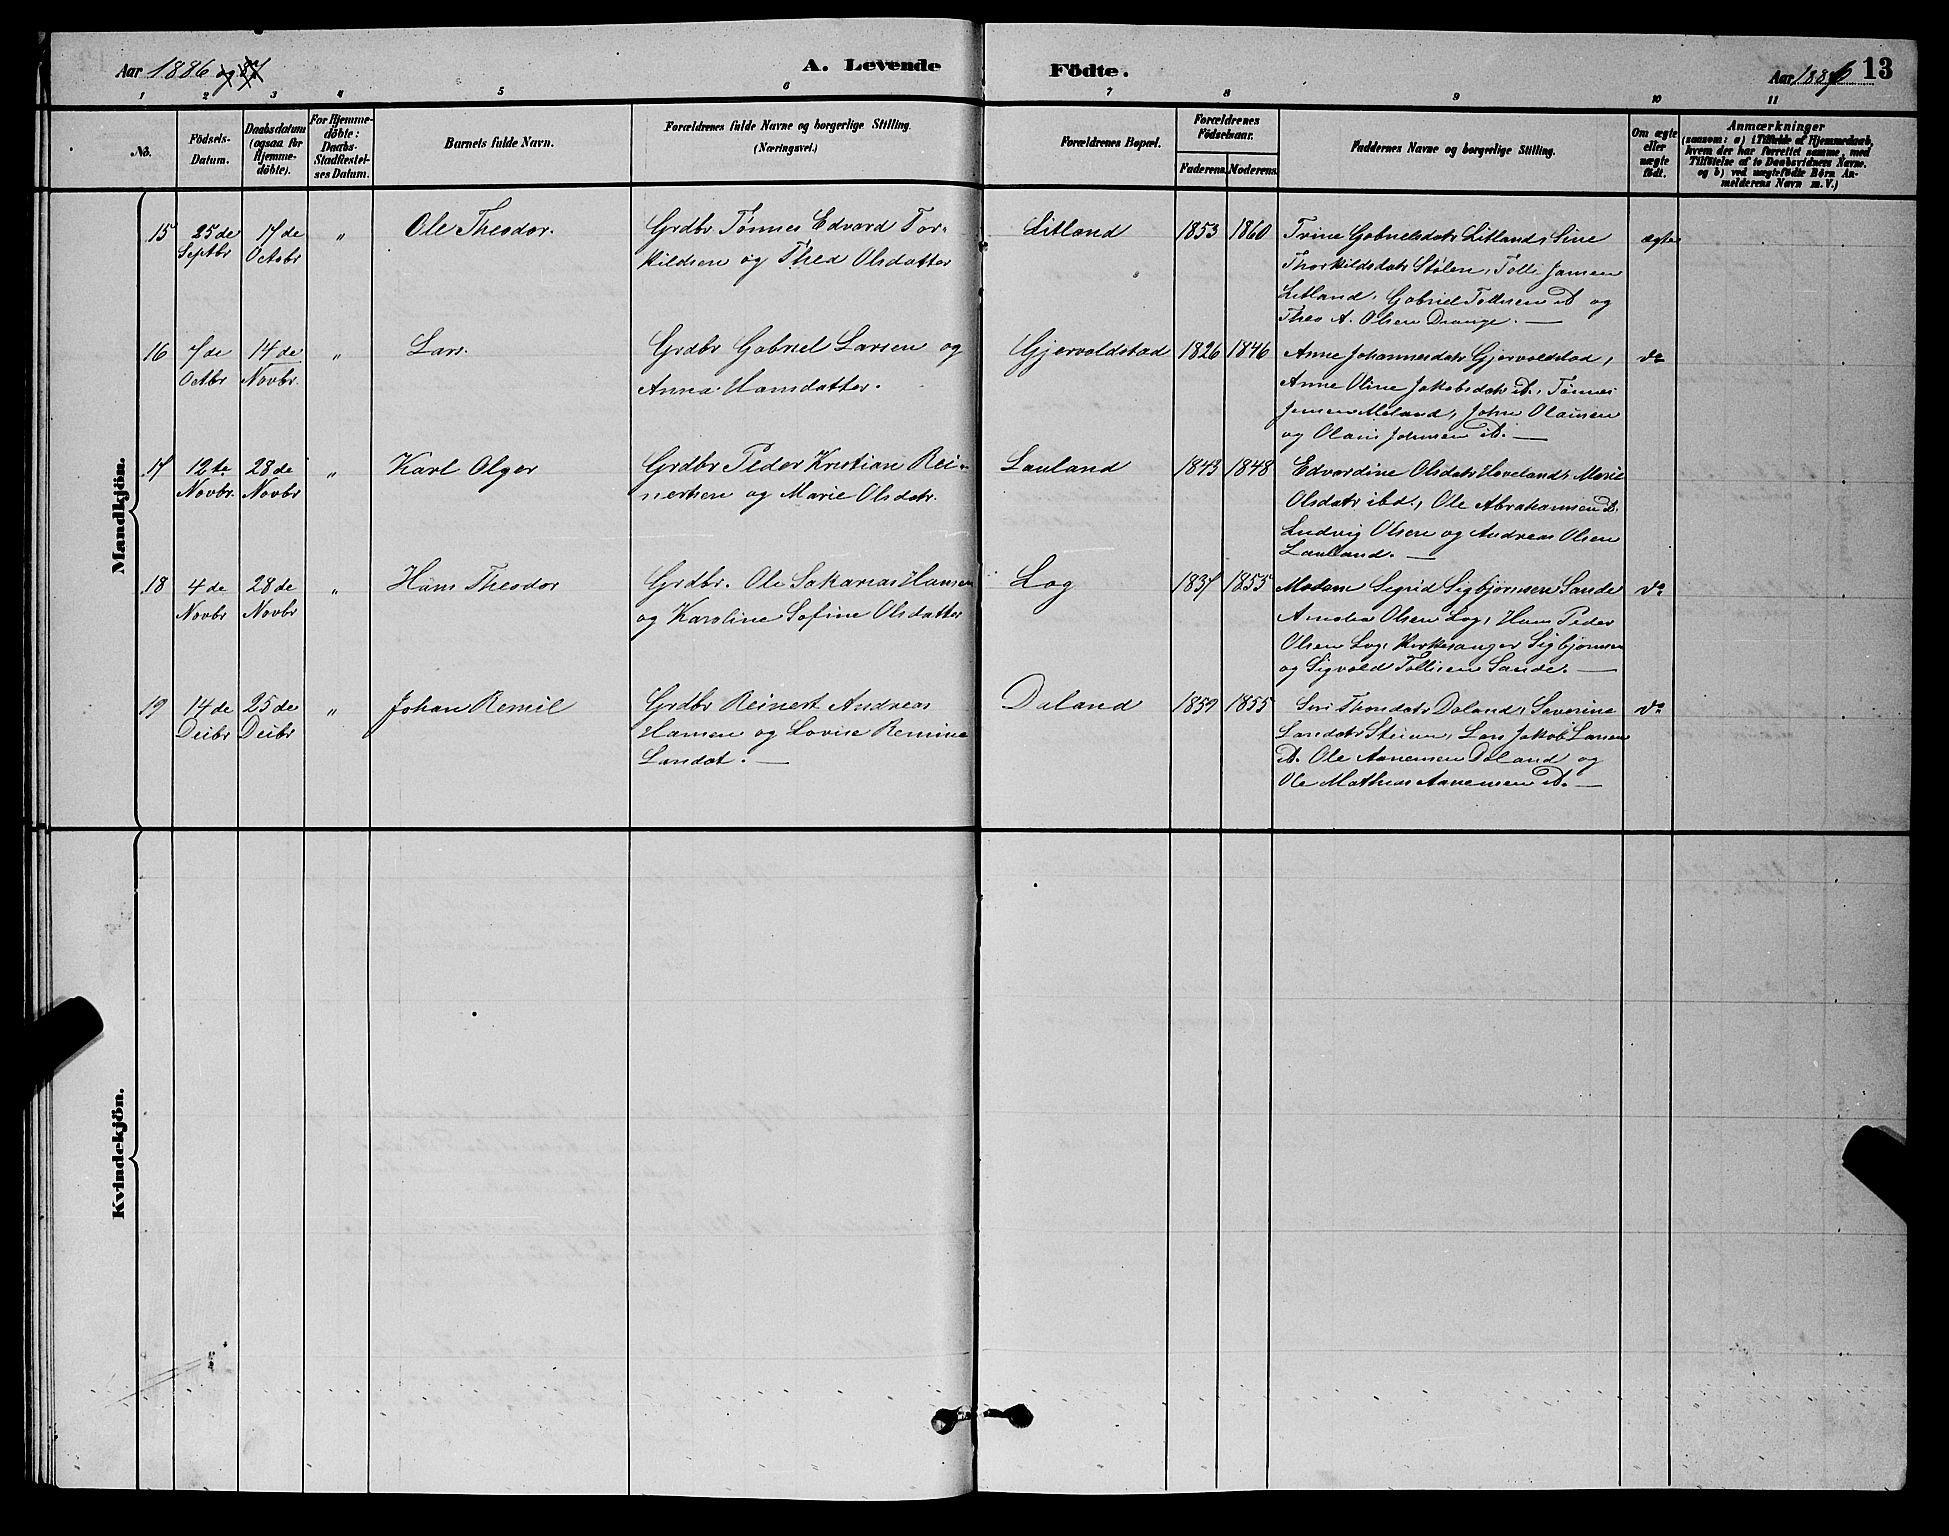 Aar 1886 og 87
A. Levende
Födte.
Aar 1886
13
1 2 3 4 5 6 7 8 9 10 11
No.
Födsels-
Datum.
Daabsdatum
(ogsaa for
Hjemme-
döbte).
For Hjemme-
döbte:
Daabs-
Stadfæstel-
ses Datum.
Barnets fulde Navn.
Forældrenes fulde Navne og borgerlige Stilling.
(Næringsvei.)
Forældrenes Bopæl.
Forældrenes
Födselsaar.
Faderens. Moderens.
Faddernes Navne og borgerlige Stilling.
Om ægte
eller
uægte
födt.
Anmærkninger
(saasom: a) i Tilfælde af Hjemmedaab,
hvem der har forrettet samme, med
Tilföielse af to Daabsvidners Navne,
og b) ved uægtefödte Börn An-
melderens Navn m. V.)
Mandkjön.
15
25de
Septbr
17de
Octbr
"
Ole Theodor.
Grdbr Tønnes Edvard Tor-
kildsen og Thea Olsdatter
Litland
1853
1860
Trine Gabrielsdatr Litland, Sine
Thorkildsdatr Stølen, Tolli Jansen
Litland, Gabriel Tollisen iD og
Theo A. Olsen Drange.
ægte
16
7de
Octbr
14de
Novbr.
"
Lars.
Grdbr Gabriel Larsen og
Anna Hansdatter.
Gjervoldstad
1826
1846
Anne Johannesdatr Gjervoldstad,
Anne Oline Jakobsdatr iD., Tønnes
Jensen Meland, John Olausen
og Olaus Johnsen iD.
do
17
12te
Novbr.
28de
Novbr
"
Karl Olger
Grdbr Peder Kristian Rei-
nertsen og Marie Olsdatr.
Lauland
1843
1848
Edvardine Olsdatr Hoveland, Marie
Olsdatr ibd., Ole Abrahamsen iD.
Ludvig Olsen og Andreas Olsen
Lauland.
18
4de
Novbr
28de
Novbr
"
Hans Theodor
Grdbr. Ole Sakarias Hansen
og Karoline Sofine Olsdatter
Log
1837
1855
Madam Sigrid Sigbjørnsen Sande
Amalia Olsen Log, Hans Peder
Olsen Log, Kirkesanger Sigbjørnsen
og Sigvald Tollisen Sande.
do
19
14de
Decbr
25de
Decbr
"
Johan Remil
Grdbr Reinert Andreas
Hansen og Lovise Remine
Larsdat.
Daland
1859
1855
Siri Thorsdatr Daland, Severine
Larsdatr Steinen, Lars Jakob Larsen
iD. Ole Aanensen Daland og
Ole Mathias Aanensen iD.
do
Kvindekjön.